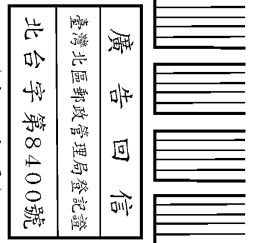 廣告回信
臺灣北區郵政管理局登記證
北台字第8400號